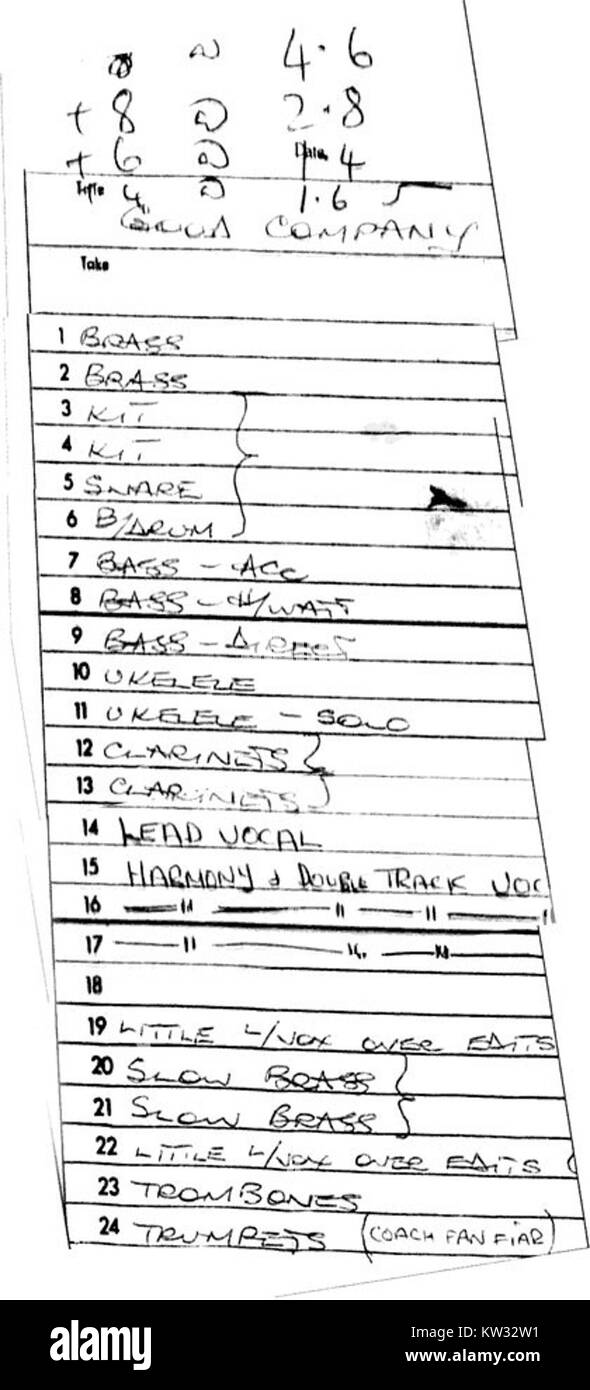 @ 4.6
+ 8 @ 2.8
+ 6 @ 1.4
Date
Title 4 @ 1.6
GOOD COMPANY
Take
1 BRASS
2 BRASS
3 KIT
4 KIT
5 SNARE
6 B/DRUM
7 BASS - ACC
8 BASS - H/WATT
9 BASS -
10 UKELELE
11 UKELELE - SOLO
12 CLARINETS
13 CLARINETS
14 LEAD VOCAL
15 HARMONY & DOUBLE TRACK VOC
16 — " — " — " — "
17 — " — " — " —
18
19 LITTLE L/VOX OVER EDITS
20 SLOW BRASS
21 SLOW BRASS
22 LITTLE L/VOX OVER EDITS (
23 TROMBONES
24 TRUMPETS (COACH FAN FIAR)
alamy
Image ID: KW32W1
www.alamy.com